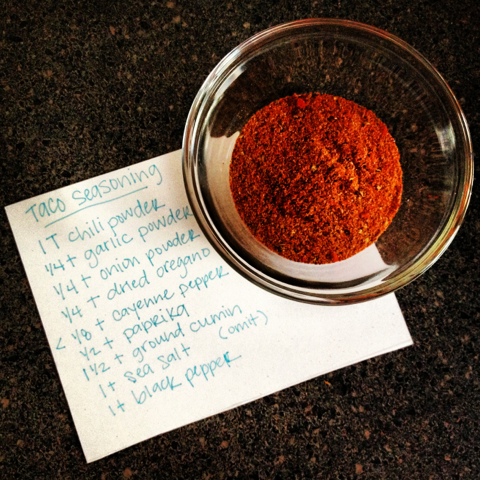 Taco Seasoning
1 T chili powder
1/4 t garlic powder
1/4 t onion powder
1/4 t dried oregano
< 1/8 t cayenne pepper
1/2 t paprika
1 1/2 t ground cumin
1 t sea salt (omit)
1 t black pepper